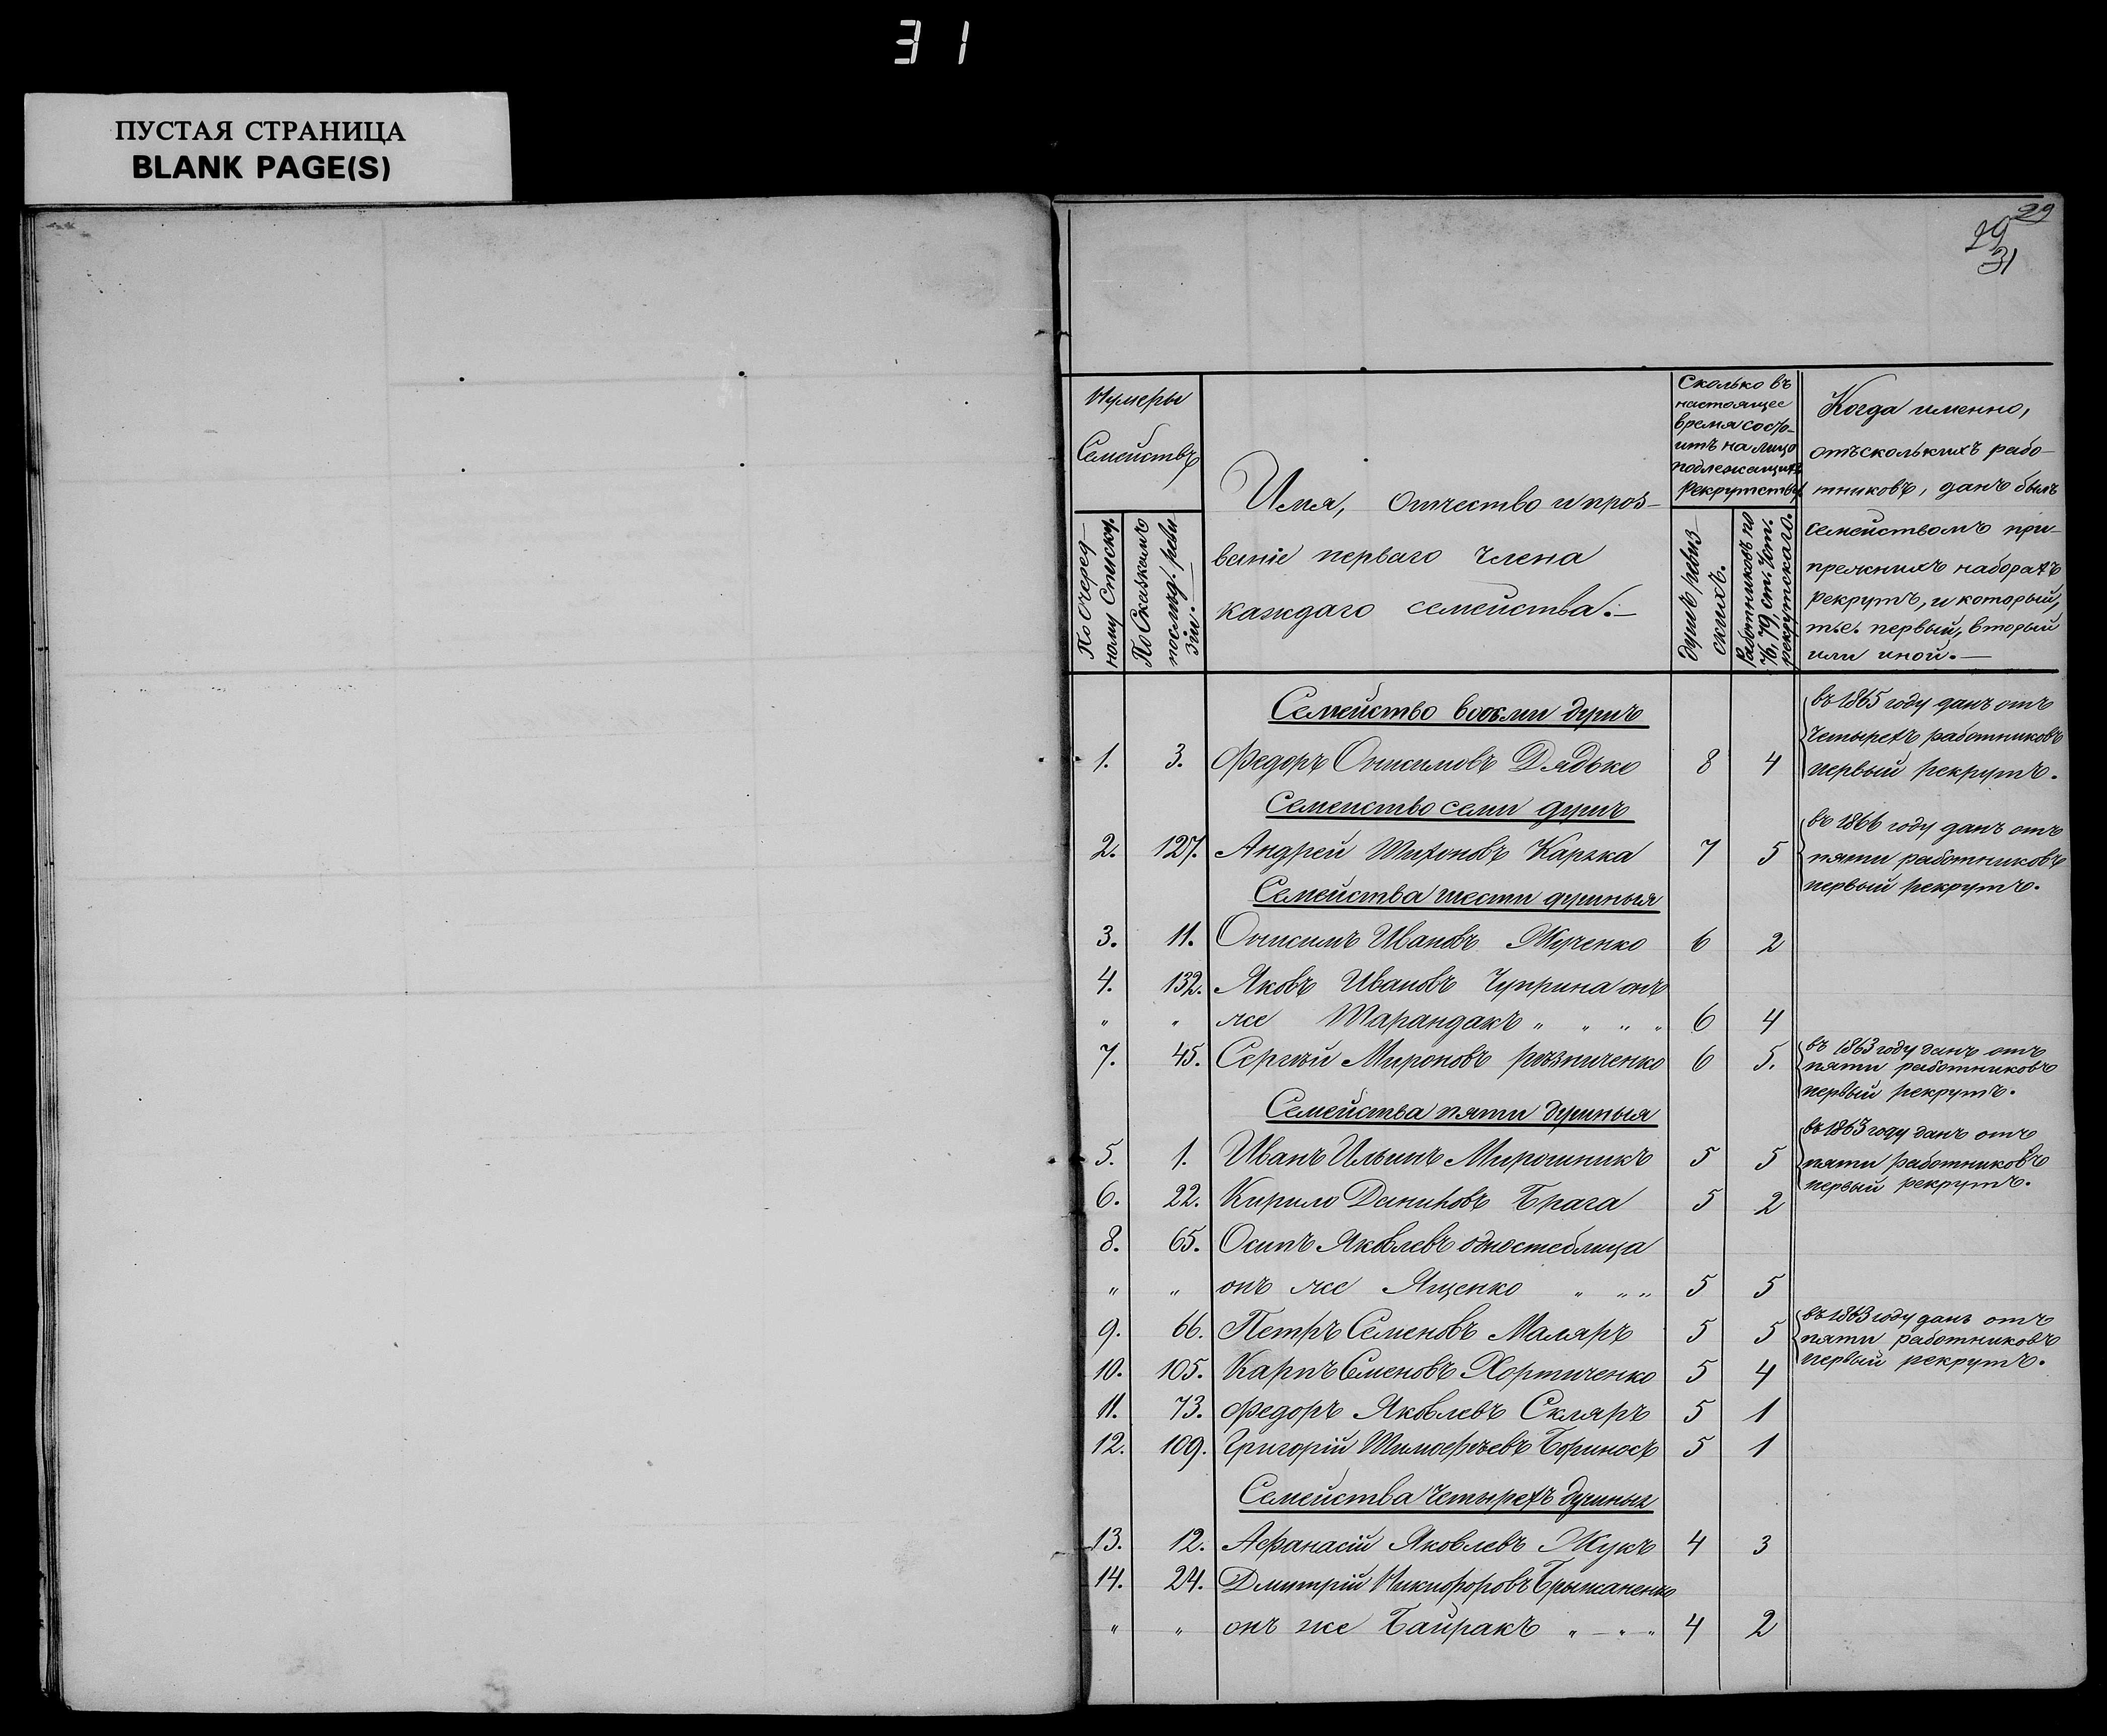 31
ПУСТАЯ СТРАНИЦА
BLANK PAGE(S)
29
29
31
Нумеры
Семействъ
По Очеред-
ному Списку.
По Сказкамъ
послѣд. реви
зіи.—
Имя, Отчество и проз-
ваніе перваго члена
каждаго семейства.—
Сколько въ
настоящее
время состо-
итъ на лицо
подлежащихъ
рекрутству
душъ ревиз-
скихъ.
Работниковъ по
76, 79 ст. Уст.
рекрутскаго.
Когда именно,
отъ сколькихъ рабо-
тниковъ, данъ былъ
семействомъ при-
прежнихъ наборахъ
рекрутъ, и который,
т.е. первый, вторый
или иной.—
Семейство восьми душъ
1. 3. Федоръ Онисимовъ Дядько 8 4
въ 1865 году данъ отъ
четырехъ работниковъ
первый рекрутъ.
Семейство семи душъ
2. 127. Андрей Тихоновъ Карзка 7 5
въ 1866 году данъ отъ
пяти работниковъ
первый рекрутъ.
Семейства шести душныя
3. 11. Онисимъ Ивановъ Жученко 6 2
4. 132. Яковъ Ивановъ Чуприна онъ
" " же Шарандакъ " " " " 6 4
7. 45. Сергѣй Мироновъ рѣзниченко 6 5.
въ 1863 году данъ отъ
пяти работниковъ
первый рекрутъ.
Семейства пяти душныя
5. 1. Иванъ Ильинъ Мирошникъ 5 5
въ 1863 году данъ отъ
пяти работниковъ
первый рекрутъ.
6. 22. Кирило Даниловъ Брага 5 2
8. 65. Осипъ Яковлевъ одностеблица
" " онъ же Яценко " " " 5 5
9. 66. Петръ Семеновъ Маляръ 5 5
въ 1863 году данъ отъ
пяти работниковъ
первый рекрутъ.
10. 105. Карпъ Сменовъ Хортиченко 5 4
11. 73. Федоръ Яковлевъ Скляръ 5 1
12. 109. Григорій Тимофѣевъ Бориносъ 5 1
Семейства четырехъ душныя
13. 12. Афанасій Яковлевъ Жукъ 4 3
14. 24. Дмитрій Никифоровъ Брыжаненко
" " онъ же Байракъ " — " - " 4 2